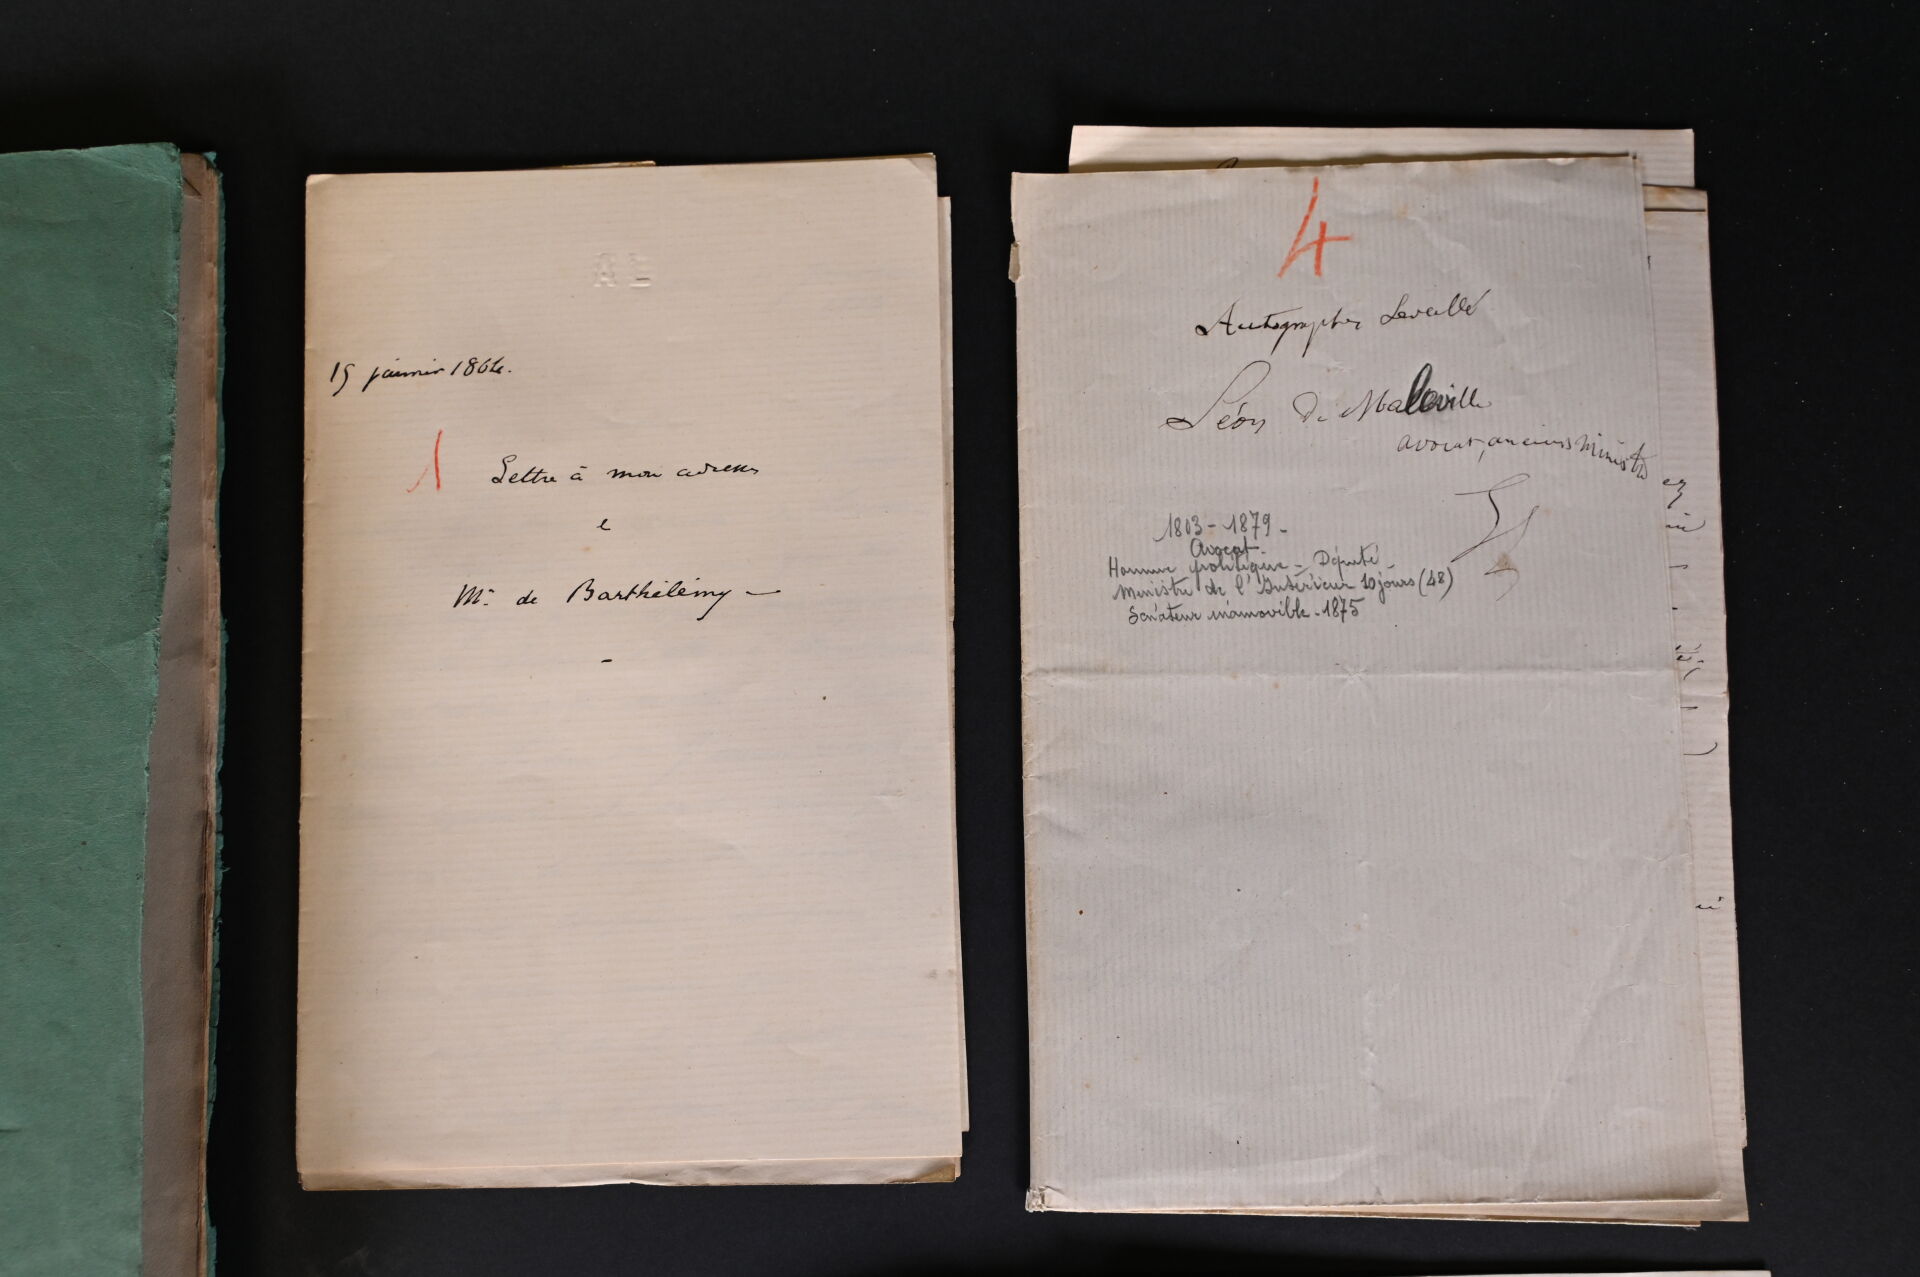 AL
15 janvier 1864.
1
Lettre à mon adresse
M. de Barthélémy —
4
Autographes Leveillé
Léon de Maleville
avocat, ancien ministre
1803 - 1879 -
Avocat -
Homme politique - Député -
Ministre de l'Intérieur 10 jours (48)
Sénateur inamovible - 1875